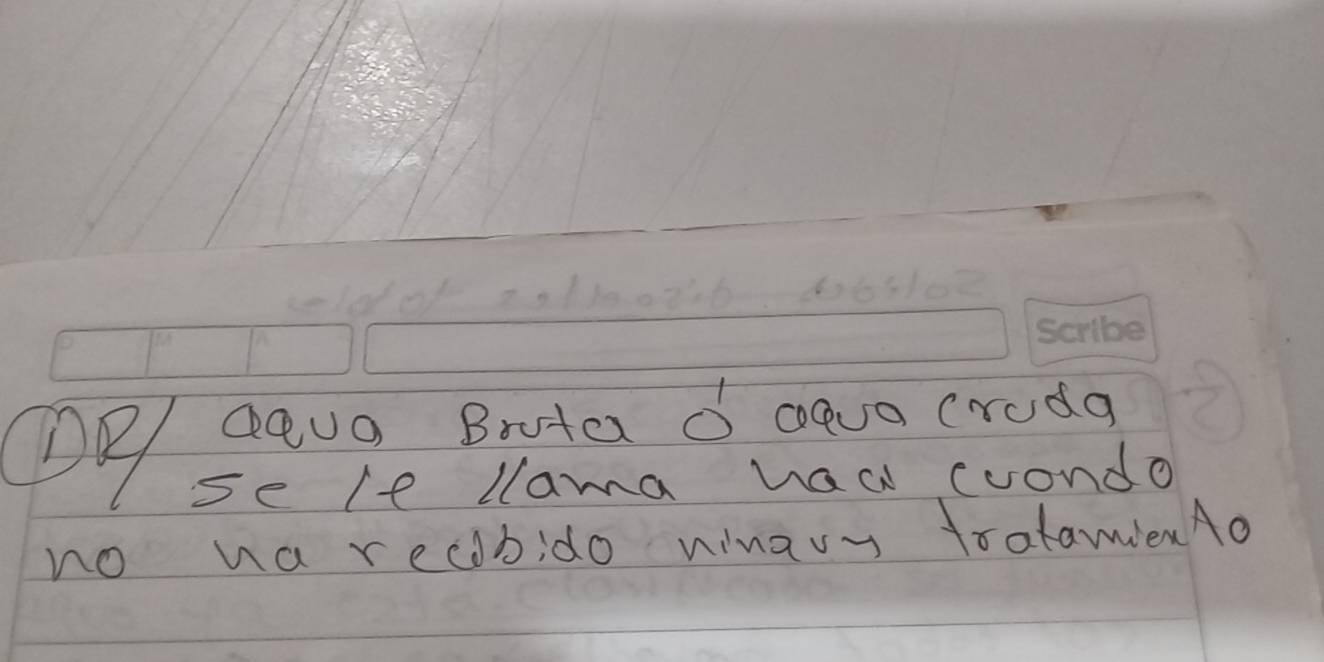 Scribe
D M A
① R/ aqua Bruta ó aqua cruda
se le llama haci cuando
no ha recibido ningun tratamiento